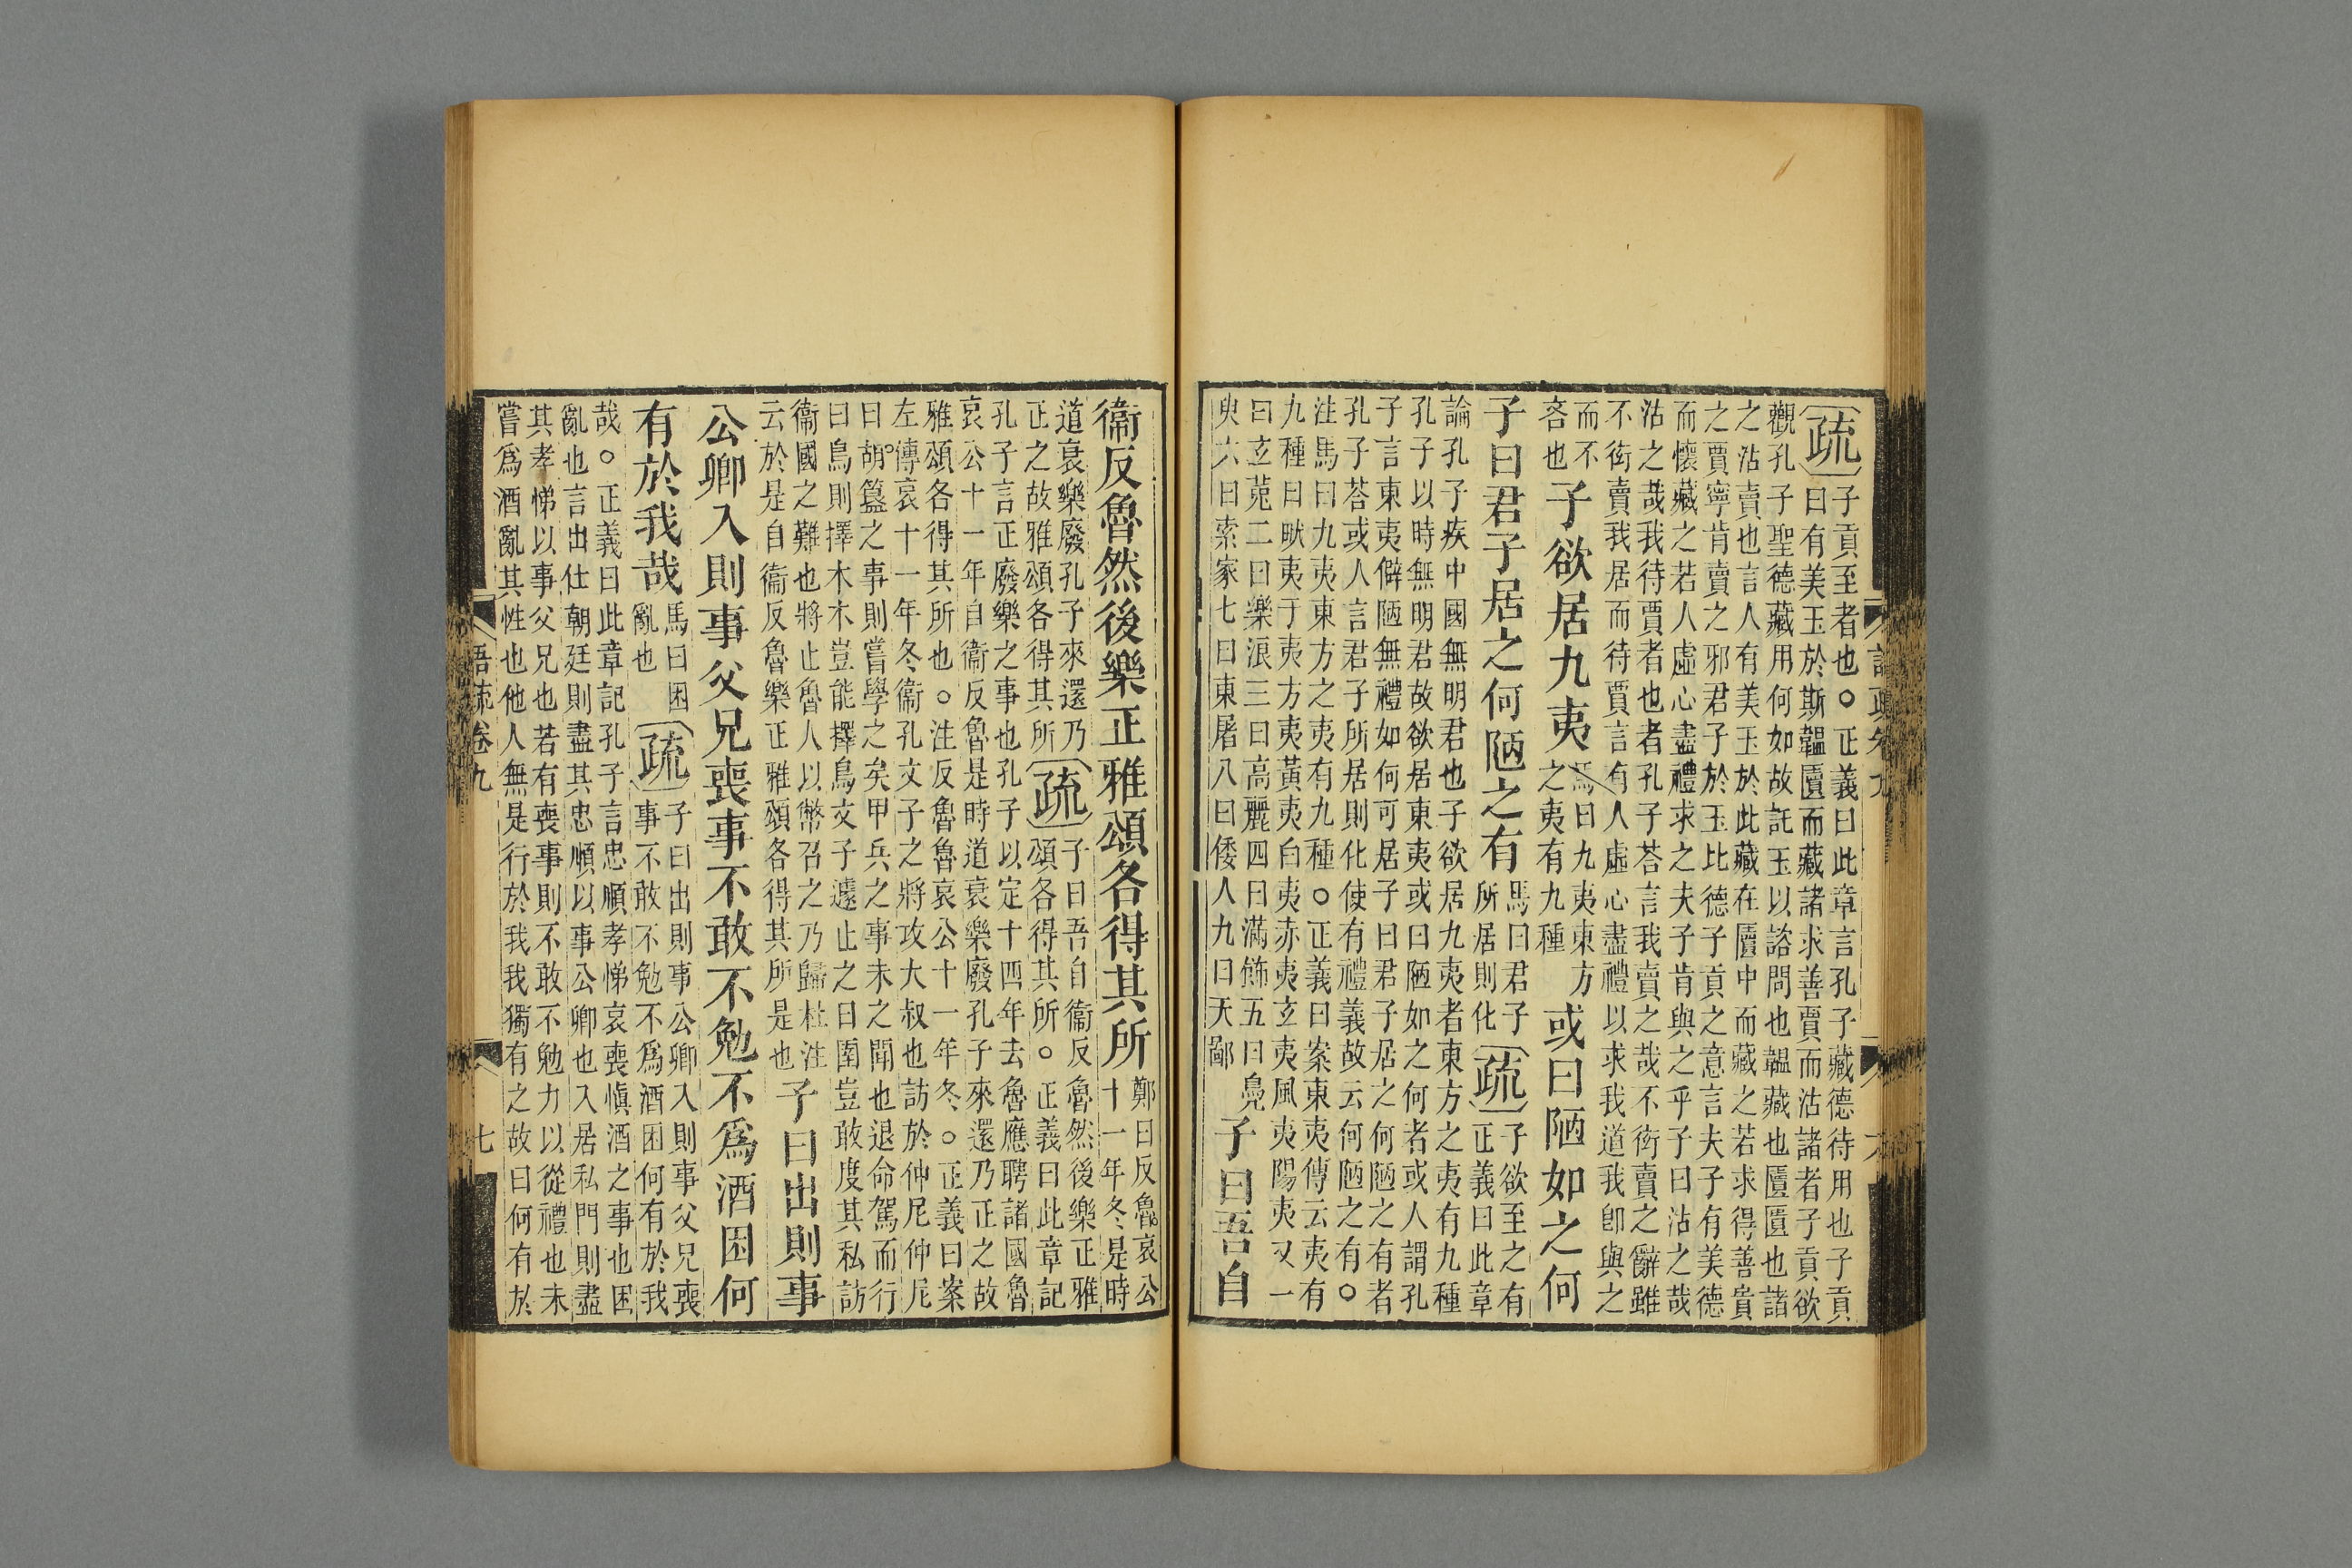 疏
子貢至者也○正義曰此章言孔子藏德待用也子貢
曰有美玉於斯韞匵而藏諸求善賈而沽諸者子貢欲
觀孔子聖德藏用何如故託玉以諮問也韞藏也匵匱也諸
之沽賣也言人有美玉於此藏在匵中而藏之若求得善貴
之賈寧肯賣之邪君子於玉比德子貢之意言夫子有美德
而懷藏之若人虛心盡禮求之夫子肯與之乎子曰沽之哉
沽之哉我待賈者也者孔子荅言我賣之哉不衒賣之辭雖
不衒賣我居而待賈言有人虛心盡禮以求我道我卽與之
而不
吝也
子欲居九夷
馬曰九夷東方
之夷有九種
或曰陋如之何
子曰君子居之何陋之有
馬曰君子
所居則化
疏
子欲至之有
正義曰此章
論孔子疾中國無明君也子欲居九夷者東方之夷有九種
孔子以時無明君故欲居東夷或曰陋如之何者或人謂孔
子言東夷僻陋無禮如何可居子曰君子居之何陋之有者
孔子荅或人言君子所居則化使有禮義故云何陋之有○
注馬曰九夷東方之夷有九種○正義曰案東夷傳云夷有
九種曰畎夷于夷方夷黃夷白夷赤夷玄夷風夷陽夷又一
曰玄菟二曰樂浪三曰高麗四曰滿飾五曰鳧
臾六曰索家七曰東屠八曰倭人九曰天鄙
子曰吾自
衞反魯然後樂正雅頌各得其所
鄭曰反魯哀公
十一年冬是時
道衰樂廢孔子來還乃
正之故雅頌各得其所
疏
子曰吾自衞反魯然後樂正雅
頌各得其所○正義曰此章記
孔子言正廢樂之事也孔子以定十四年去魯應聘諸國魯
哀公十一年自衞反魯是時道衰樂廢孔子來還乃正之故
雅頌各得其所也○注反魯魯哀公十一年冬○正義曰案
左傳哀十一年冬衞孔文子之將攻大叔也訪於仲尼仲尼
曰胡簋之事則嘗學之矣甲兵之事未之聞也退命駕而行
曰鳥則擇木木豈能擇鳥文子遽止之曰圉豈敢度其私訪
衞國之難也將止魯人以幣召之乃歸杜注
云於是自衞反魯樂正雅頌各得其所是也
子曰出則事
公卿入則事父兄喪事不敢不勉不爲酒困何
有於我哉
馬曰困
亂也
疏
子曰出則事公卿入則事父兄喪
事不敢不勉不爲酒困何有於我
哉○正義曰此章記孔子言忠順孝悌哀喪愼酒之事也困
亂也言出仕朝廷則盡其忠順以事公卿也入居私門則盡
其孝悌以事父兄也若有喪事則不敢不勉力以從禮也未
嘗爲酒亂其性也他人無是行於我我獨有之故曰何有於
卷九
七